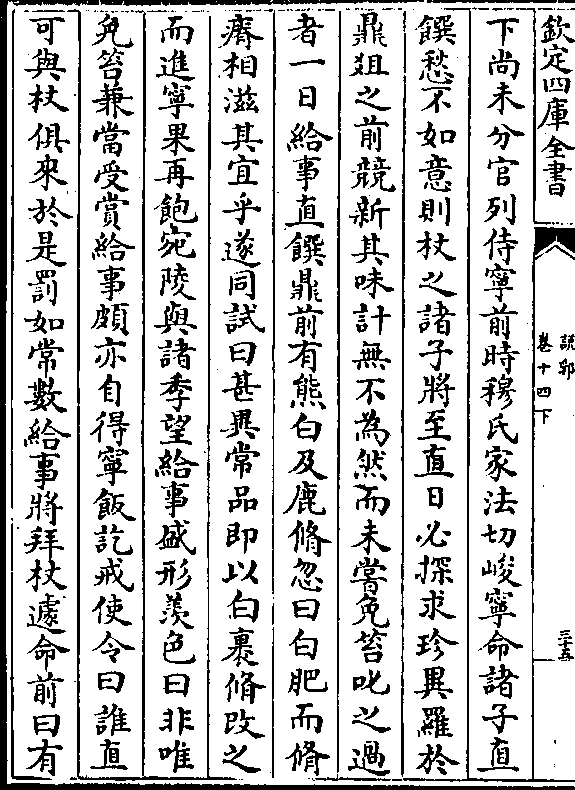 欽定四庫全書
說郛
卷十四下
三十五
下尚未分官列侍寧前時穆氏家法切峻寧命諸子直
饌愁不如意則杖之諸子將至直日必探求珍異羅於
鼎俎之前競新其味計無不為然而未嘗免笞叱之過
者一日給事直饌鼎前有熊白及鹿脩忽曰白肥而脩
瘠相滋其宜乎遂同試曰甚異常品即以白裹脩改之
而進寧果再飽宛陵與諸季望給事盛形羨色曰非唯
免笞兼當受賞給事頗亦自得寧飯訖戒使令曰誰直
可與杖俱來於是罰如常數給事將拜杖遽命前曰有